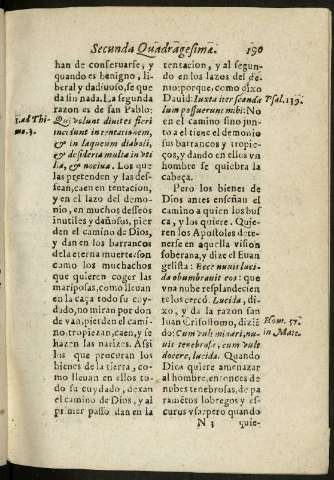 Secunda Quadragesimæ. 190
han de conseruarse; y
quando es benigno, li-
beral y dadiuoso, se que
da sin nada. La segunda
razon es de san Pablo:
1. ad Thi
mo. 3.
Qui volunt diuites fieri
incidunt in tentationem,
& in laqueum diaboli,
& desideria multa inuti
lia, & nociua. Los que
las pretenden y las des-
sean, caen en tentacion,
y en el lazo del demo-
nio, en muchos desseos
inutiles y dañosos, pier
den el camino de Dios,
y dan en los barrancos
de la eterna muerte: son
como los muchachos
que quieren coger las
mariposas, como lleuan
en la caça todo su cuy-
dado, no miran por don
de van, pierden el cami-
no, tropiezan, caen, y se
hazen las narizes. Assi
los que procuran los
bienes de la tierra, co-
mo lleuan en ellos to-
do su cuydado, dexan
el camino de Dios, y al
primer passo dan en la
tentacion, y al segun-
do en los lazos del de-
monio: porque, como dixo
Dauid: Iuxta iter scanda
lum posuerunt mihi: No
en el camino sino jun-
to a el tiene el demonio
sus barrancos y tropie-
ços, y dando en ellos vn
hombre se quiebra la
cabeça.
Psal. 139.
Pero los bienes de
Dios antes enseñan el
camino a quien los bus
ca, y los quiere. Quie-
ren los Apostoles dete-
nerse en aquella vision
soberana, y dize el Euan
gelista: Ecce nubes luci-
da obumbrauit eos: que
vna nube resplandecien
te los cercó. Lucida, di-
xo, y da la razon san
Iuan Crisostomo, diziẽ
do: Cum vult minari, nu-
uis tenebrosa, cum vult
docere, lucida. Quando
Dios quiere amenazar
al hombre, entonces de
nubes tenebrosas, de pa
ramẽtos lobregos y es-
curos vsa: pero quando
Hom. 57.
in Matt.
N 3 quie-